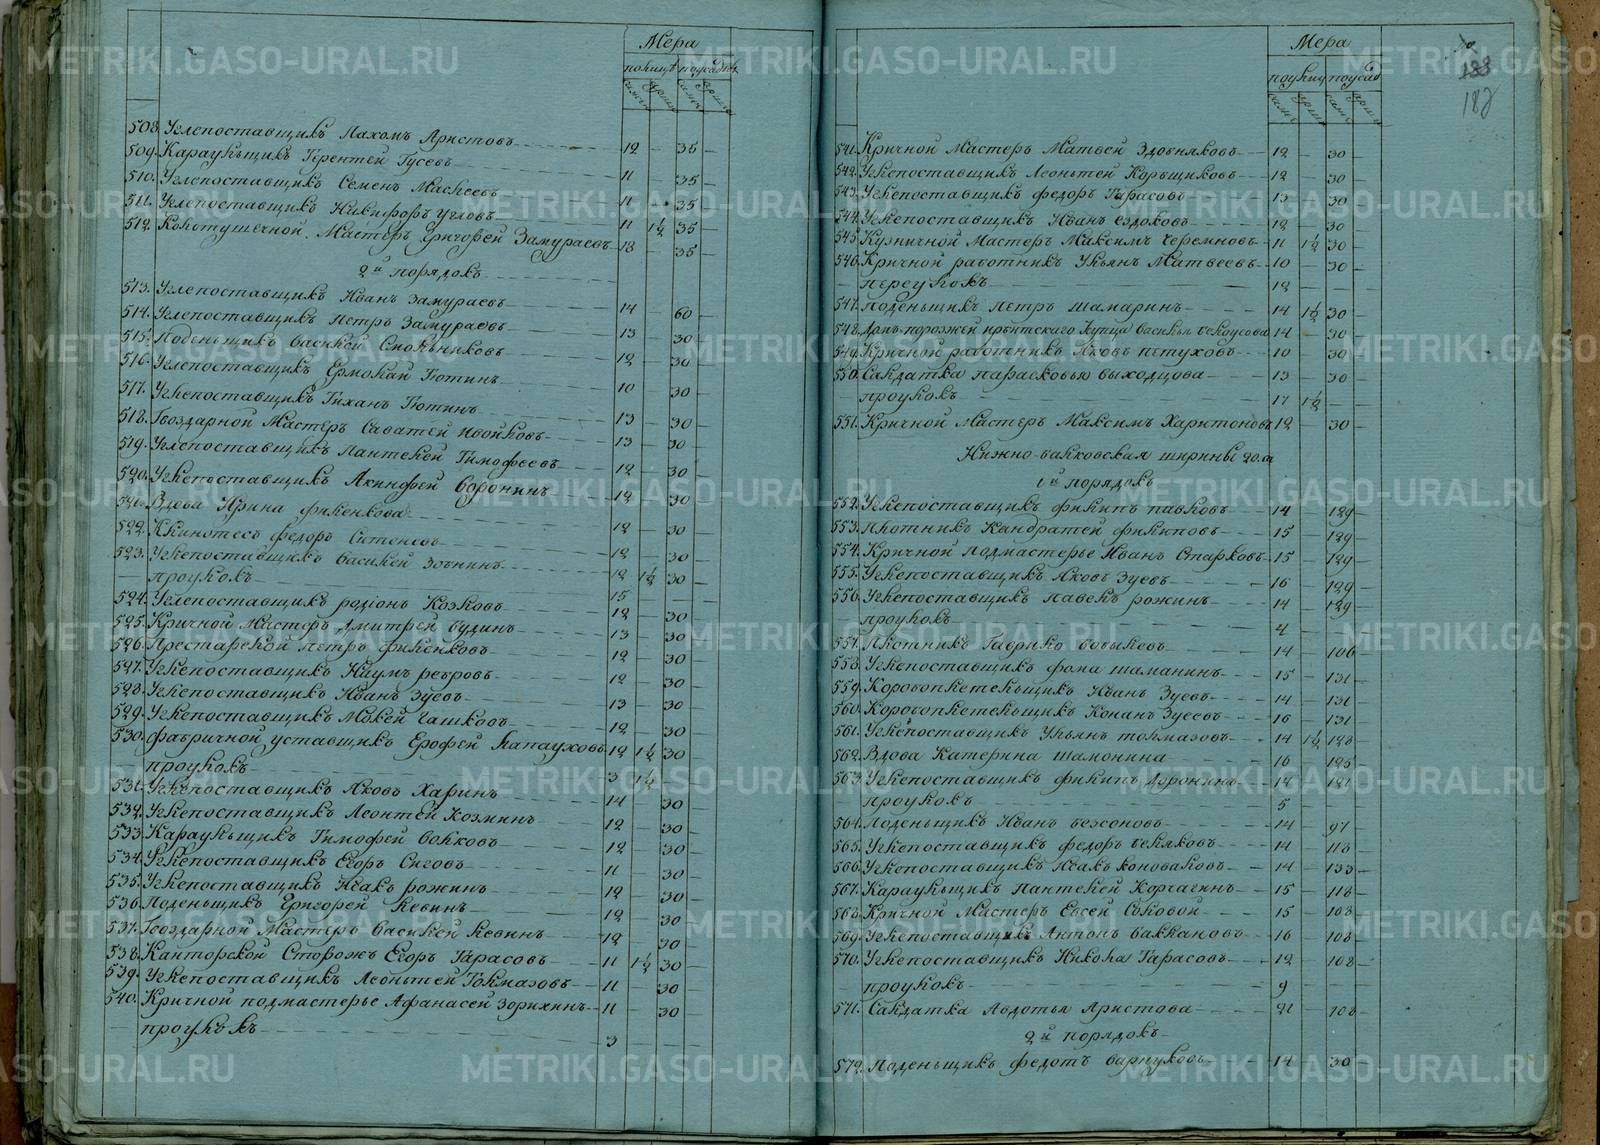 Мера
поулицѣ поусадьбѣ
сажен арши саже арши
508. Углепоставщикъ Пахомъ Аристовъ 12 — 35 —
509. Караульщикъ Терентей Гусевъ 11 — 35 —
510. Углепоставщикъ Семенъ Маскеевъ 11 — 35 —
511. Углепоставщикъ Никифоръ Угловъ 11 1½ 35 —
512. Колотушечной Мастеръ Григорей Замураевъ 18 — 35 —
2й порядокъ
513. Углепоставщикъ Иванъ Замураевъ 14 — 60 —
514. Углепоставщикъ Петръ Замураевъ 13 — 30 —
515. Поденьщикъ Василей Смольниковъ 12 — 30 —
516. Углепоставщикъ Ермолай Тютинъ 10 — 30 —
517. Углепоставщикъ Тиханъ Тютинъ 13 — 30 —
518. Гвоздарной Мастеръ Саватей Ивойловъ 13 — 30 —
519. Углепоставщикъ Пантелей Тимофеевъ 12 — 30 —
520. Углепоставщикъ Акинфей Воронинъ 12 — 30 —
521. Вдова Ирина Филенкова 12 — 30 —
522. Федоръ 12 — 30 —
523. Углепоставщикъ Василей Зотнинъ 12 1½ 30 —
проулокъ 15 — — —
524. Углепоставщикъ родіонъ Козловъ 12 — 30 —
525. Кричной Мастеръ Дмитрей Будинъ 13 — 30 —
526. Престарелой Петръ Филенковъ 12 — 30 —
527. Углепоставщикъ Наумъ ребровъ 12 — 30 —
528. Углепоставщикъ Иванъ Зуевъ 13 — 30 —
529. Углепоставщикъ Мокей Гашковъ 12 — 30 —
530. фабричной уставщикъ Ерофей Лапауховъ 12 1½ 30 —
проулокъ 3 1½
531. Углепоставщикъ Яковъ Харинъ 14 — 30 —
532. Углепоставщикъ Леонтей Козминъ 12 — 30 —
533. Караульщикъ Тимофей Волковъ 12 — 30 —
534. Углепоставщикъ Егоръ Сиговъ 11 — 30 —
535. Углепоставщикъ Исакъ рожинъ 12 — 30 —
536. Поденьщикъ Григорей Левинъ 12 — 30 —
537. Гвоздарной Мастеръ Василей Левинъ 12 — 30 —
538. Канторской Сторожъ Егоръ Тарасовъ 11 1½ 30 —
539. Углепоставщикъ Леонтей Толмазовъ 11 — 30 —
540. Кричной подмастерье Афанасей Зорихинъ 11 — 30 —
проулокъ 3
Мера
поулиц поусад
саже арши саже арши
182
541. Кричной Мастеръ Матвей Здобняковъ 12 — 30 —
542. Углепоставщикъ Леонтей Корьщиковъ 12 — 30 —
543. Углепоставщикъ Федоръ Тарасовъ 13 — 30 —
544. Углепоставщикъ Иванъ ездоковъ 12 — 30 —
545. Кузничной Мастеръ Максимъ Черемновъ 11 1½ 30 —
546. Кричной работникъ Ульянъ Матвеевъ 10 — 30 —
переулокъ 12 —
547. Поденьщикъ Петръ Шамаринъ 14 1½ 30 —
548. порозжей ирбитскаго купца Василья Белоусова 14 — 30 —
549. Кричной работникъ Яковъ петуховъ 10 — 30 —
550. Салдатка Парасковью выходцова 13 — 30 —
проулокъ 17 1½
551. Кричной Мастеръ Максимъ Харитоновъ 12 — 30 —
Нижно-валковская ширины 20 са
1й порядокъ
552. Углепоставщикъ филипъ павловъ 14 — 129
553. Плотникъ Кандратей филиповъ 15 — 129
554. Кричной Подмастерье Иванъ Старковъ 15 — 129
555. Углепоставщикъ Яковъ Зуевъ 16 — 129
556. Углепоставщикъ Павелъ рожинъ 14 — 129
проулокъ 4 —
557. Плотникъ Гаврило бобылевъ 14 — 106
558. Углепоставщикъ фома шаманинъ 15 — 131
559. Коробоплетельщикъ Иванъ Зуевъ 14 — 131
560. Коробоплетельщикъ Конанъ Зуевъ 16 — 131
561. Углепоставщикъ Ульянъ толмазовъ 14 1½ 128
562. Вдова Катерина Шамонина 16 — 125
563. Углепоставщикъ филипъ Доронинъ 14 — 121
проулокъ 5 —
564. Поденьщикъ Иванъ безсоновъ 14 — 97
565. Углепоставщикъ федоръ беляковъ 14 — 118
566. Углепоставщикъ Исакъ коноваловъ 14 — 133
567. Караульщикъ Пантелей Корчагинъ 15 — 118
568. Кричной Мастеръ Евсей Быковой 15 — 108
569. Углепоставщикъ Антонъ балкановъ 16 — 108
570. Углепоставщикъ Никола Тарасовъ 12 — 108
проулокъ 9 —
571. Салдатка Авдотья Аристова 21 — 108
2й порядокъ
572. Поденьщикъ федотъ варнуковъ 14 — 30
METRIKI.GASO-URAL.RU